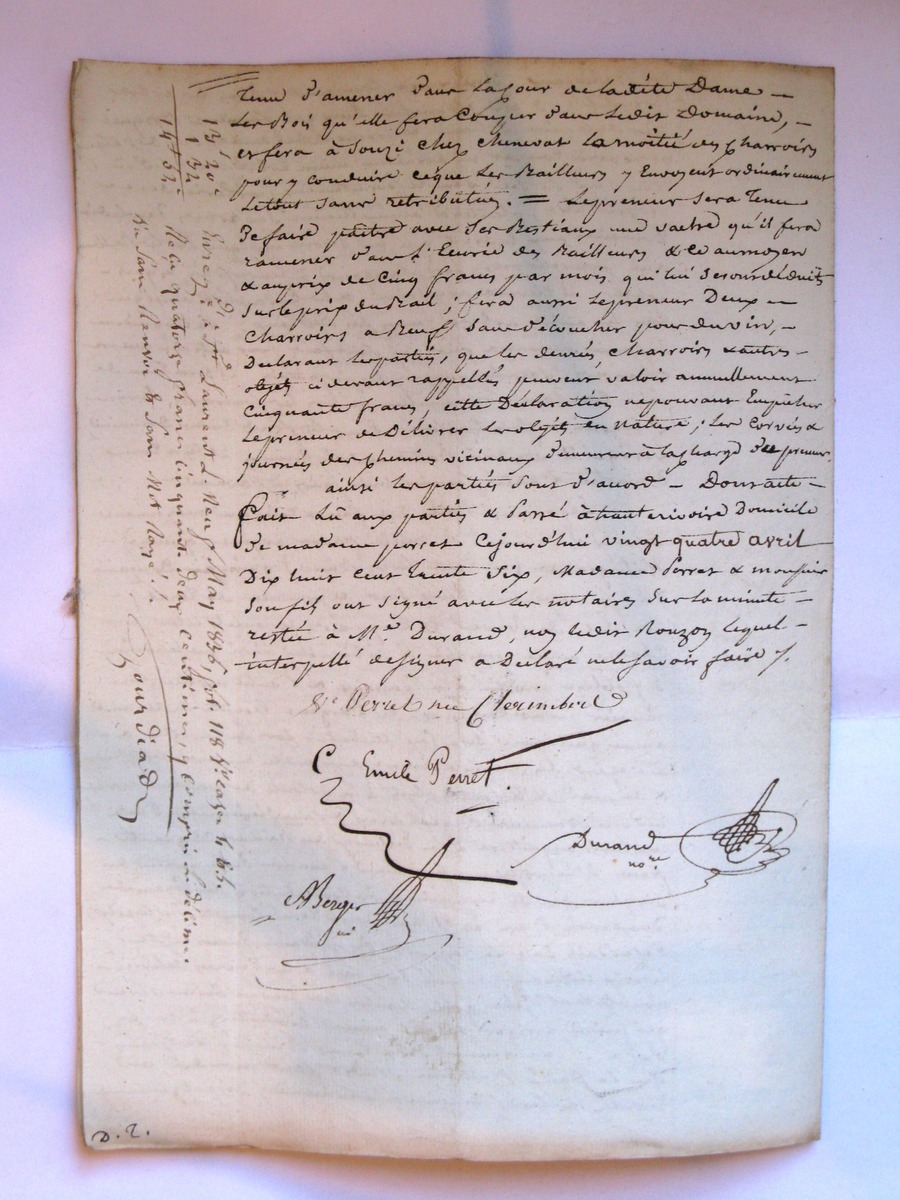 Tenu d'amener dans la Cour de la dite Dame –
Les Bois qu'elle fera Couper dans ledit Domaine, –
et fera à Souzi chez chenevat la moitié des Charroirs
pour y conduire ce que les Bailleurs y Envoyent ordinairement
Le tout sans retribution. = Le preneur sera Tenu
De faire paitre avec Ses Bestiaux une vache qu'il fera
ramener dans l'Ecurie des Bailleurs & ce au moyen
& au prix de Cinq francs par mois qui lui seront déduits
Sur le prix du Bail ; fera aussi le preneur Deux –
Charroirs a Bœufs Sans découcher pour du vin, –
Declarant les parties, que les denrés, Charroirs & autres –
objets ci devant rappellés peuvent valoir annuellement
Cinquante francs, cette Déclaration ne pouvant Empêcher
Le preneur de Délivrer les objets en nature ; Les Corvés &
journées des Chemins vicinaux demeurent à la Charge du preneur.
ainsi les parties sont d'accord – Dont acte –
Fait Lû aux parties & Passé à hauterivoire Domicile
de madame perret Cejourd'hui vingt quatre avril
Dix huit Cent Trente Six, Madame Perret & monsieur
Son fils ont Signé avec les notaires Sur la minute –
restée à Me. Durand, non ledit Rouzon lequel –
interpellé de signer a Déclaré ne le savoir faire /.
Ve Perret née Clerimbert
C Emile Perret
Durand
nore.
ABerger
D. 2.
13f 20c
1 32
14f 52c
Enreg. à St Laurent L. Neuf May 1836, fol. 118 Vo. cases 4. & 5.
Reçu quatorze francs cinquante deux centimes, y compris le décime.
Sans Renvoi & Sans Mot Rayé ./.
Gourdiad